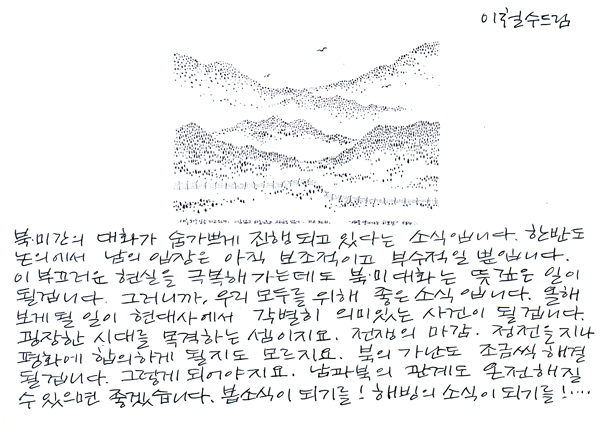 이철수드림
북·미간의 대화가 숨가쁘게 진행되고 있다는 소식입니다. 한반도
논의에서 남의 입장은 아직 보조적이고 부수적일 뿐입니다.
이 부끄러운 현실을 극복해 가는데도 북·미 대화는 뜻깊은 일이
될겁니다. 그러니까, 우리 모두를 위해 좋은 소식입니다. 올해
보게 될 일이 현대사에서 각별히 의미있는 사건이 될겁니다.
굉장한 시대를 목격하는 셈이지요. 전쟁의 마감. 정전을 지나
평화에 합의하게 될지도 모르지요. 북의 가난도 조금씩 해결
될겁니다. 그렇게 되어야지요. 남과 북의 관계도 온전해질
수 있으면 좋겠습니다. 봄소식이 되기를! 해빙의 소식이 되기를!…